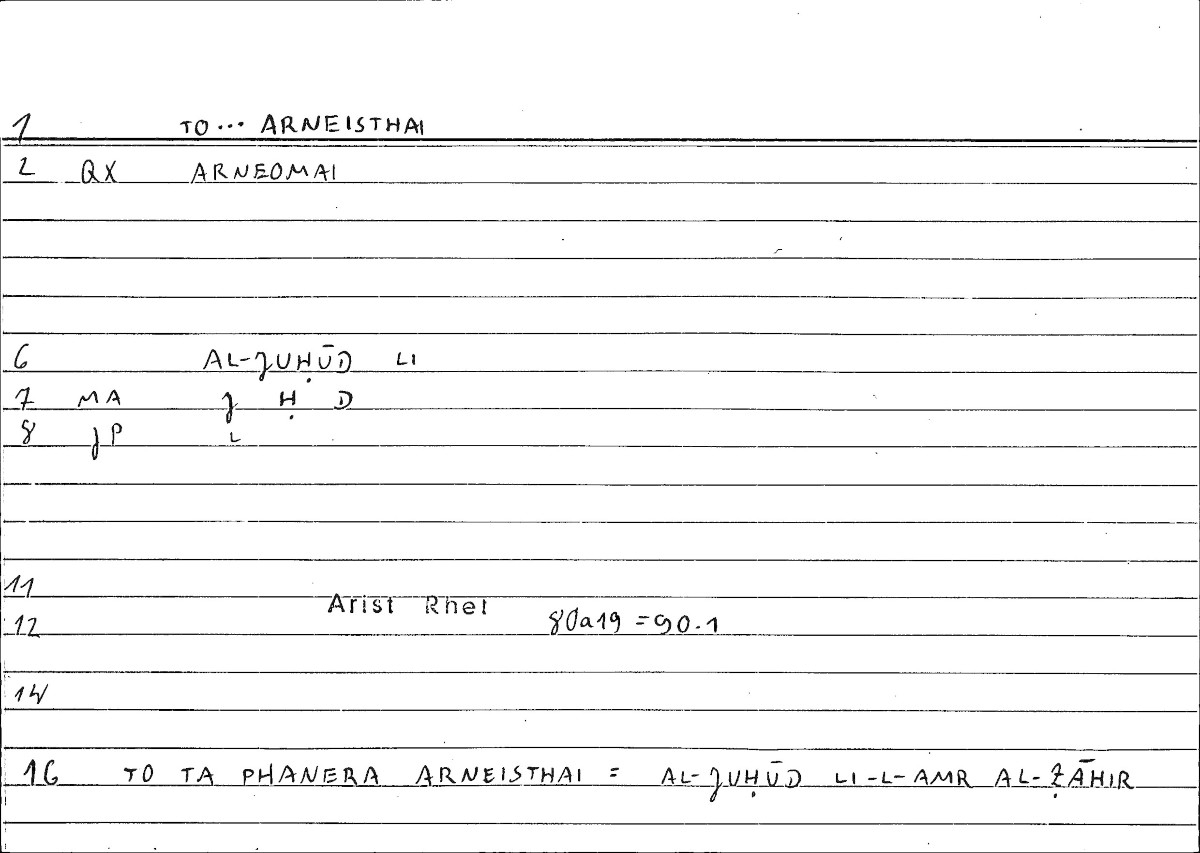 1 TO... ARNEISTHAI
2 QX ARNEOMAI
6 AL-JUḤŪD LI
7 MA J Ḥ D
8 JP L
11
Arist Rhet
12 80a19 = 90.1
14
16 TO TA PHANERA ARNEISTHAI = AL-JUḤŪD LI-L-AMR AL-ẒĀHIR